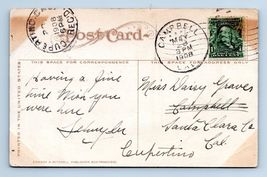 CUPERTINO, CAL.
1908
REC'D.
Post Card
CAMPBELL
MAY
3 PM
1908
CAL.
THIS SPACE FOR CORRESPONDENCE
THIS SPACE FOR ADDRESS ONLY
Having a fine
time Wish you
were here
Miss Daisy Graves
Campbell
Santa Clara Co
Cal.
Cupertino
PRINTED IN THE UNITED STATES